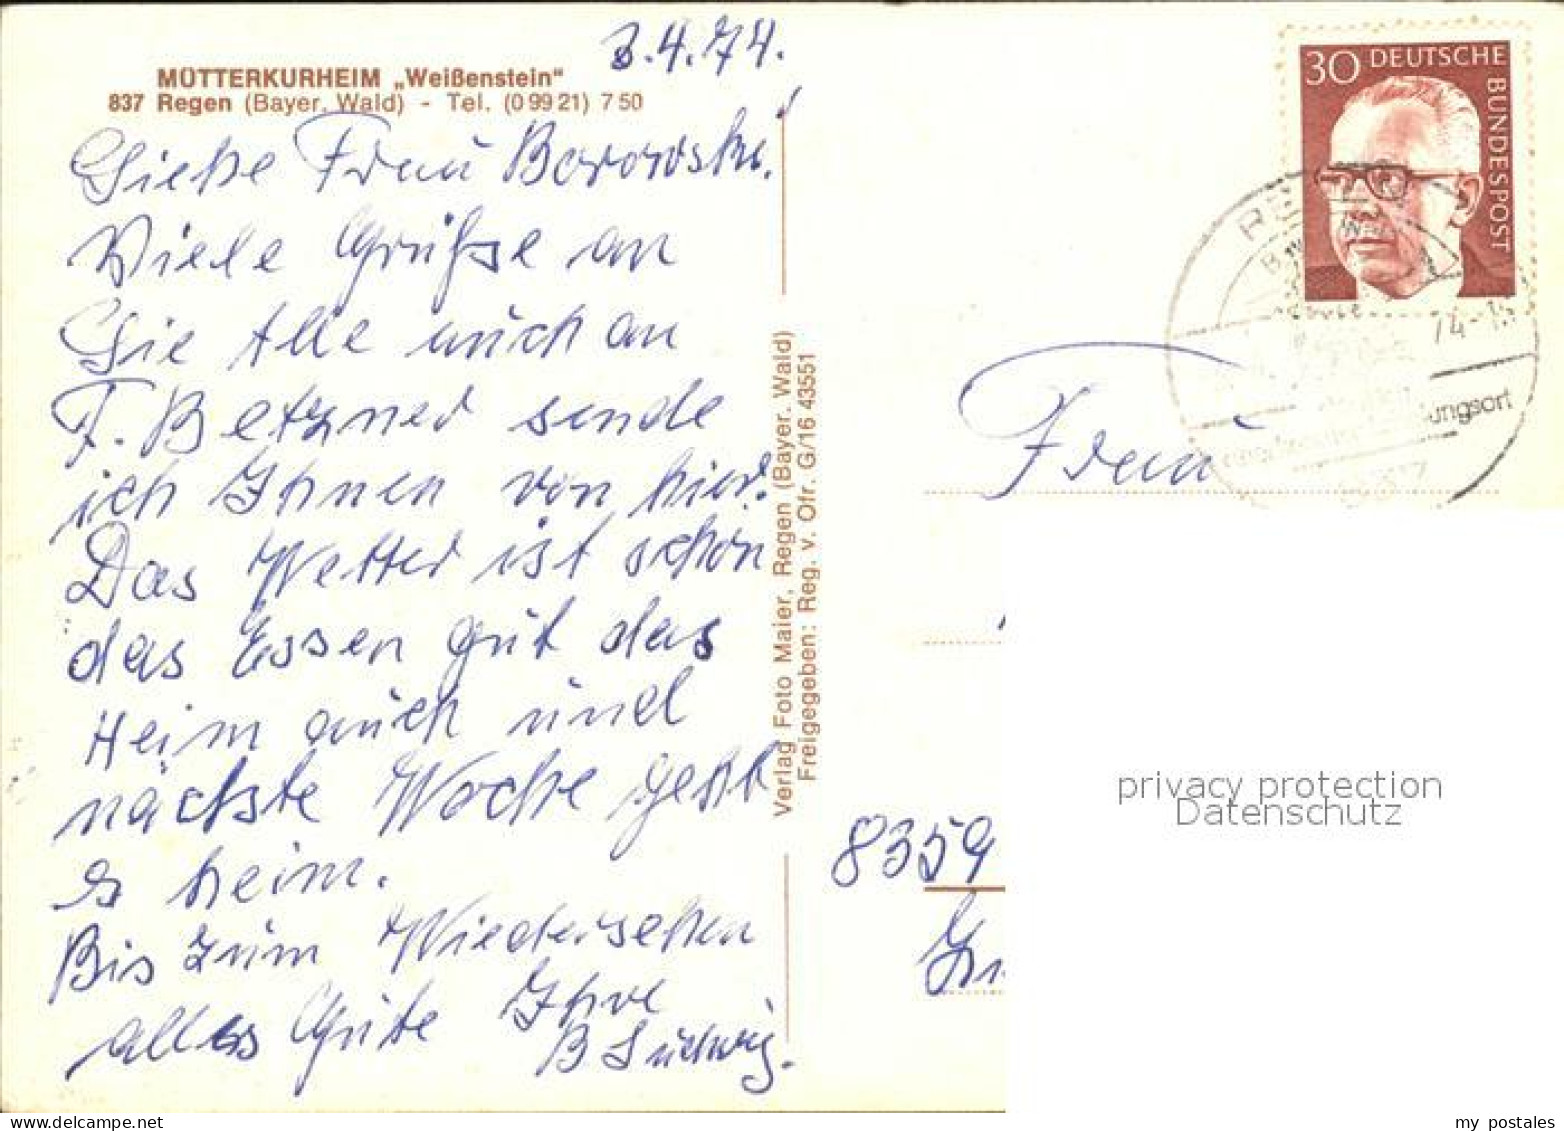 3.4.74.
MÜTTERKURHEIM „Weißenstein"
837 Regen (Bayer. Wald) - Tel. (0 99 21) 7 50
Liebe Frau Borowski!
Viele Grüße an
Sie Alle auch an
F. Betzner sende
ich Ihnen von hier.
Das Wetter ist schön
das Essen gut das
Heim auch und
nächste Woche geht
es heim.
Bis zum Wiedersehen
alles Gute Ihre
B Ludwig.
Verlag Foto Maier, Regen (Bayer. Wald)
Freigegeben: Reg. v. Ofr. G/16 43551
30 DEUTSCHE
BUNDESPOST
74-
ungsort
Frau
8359
privacy protection
Datenschutz
my postales
www.delcampe.net